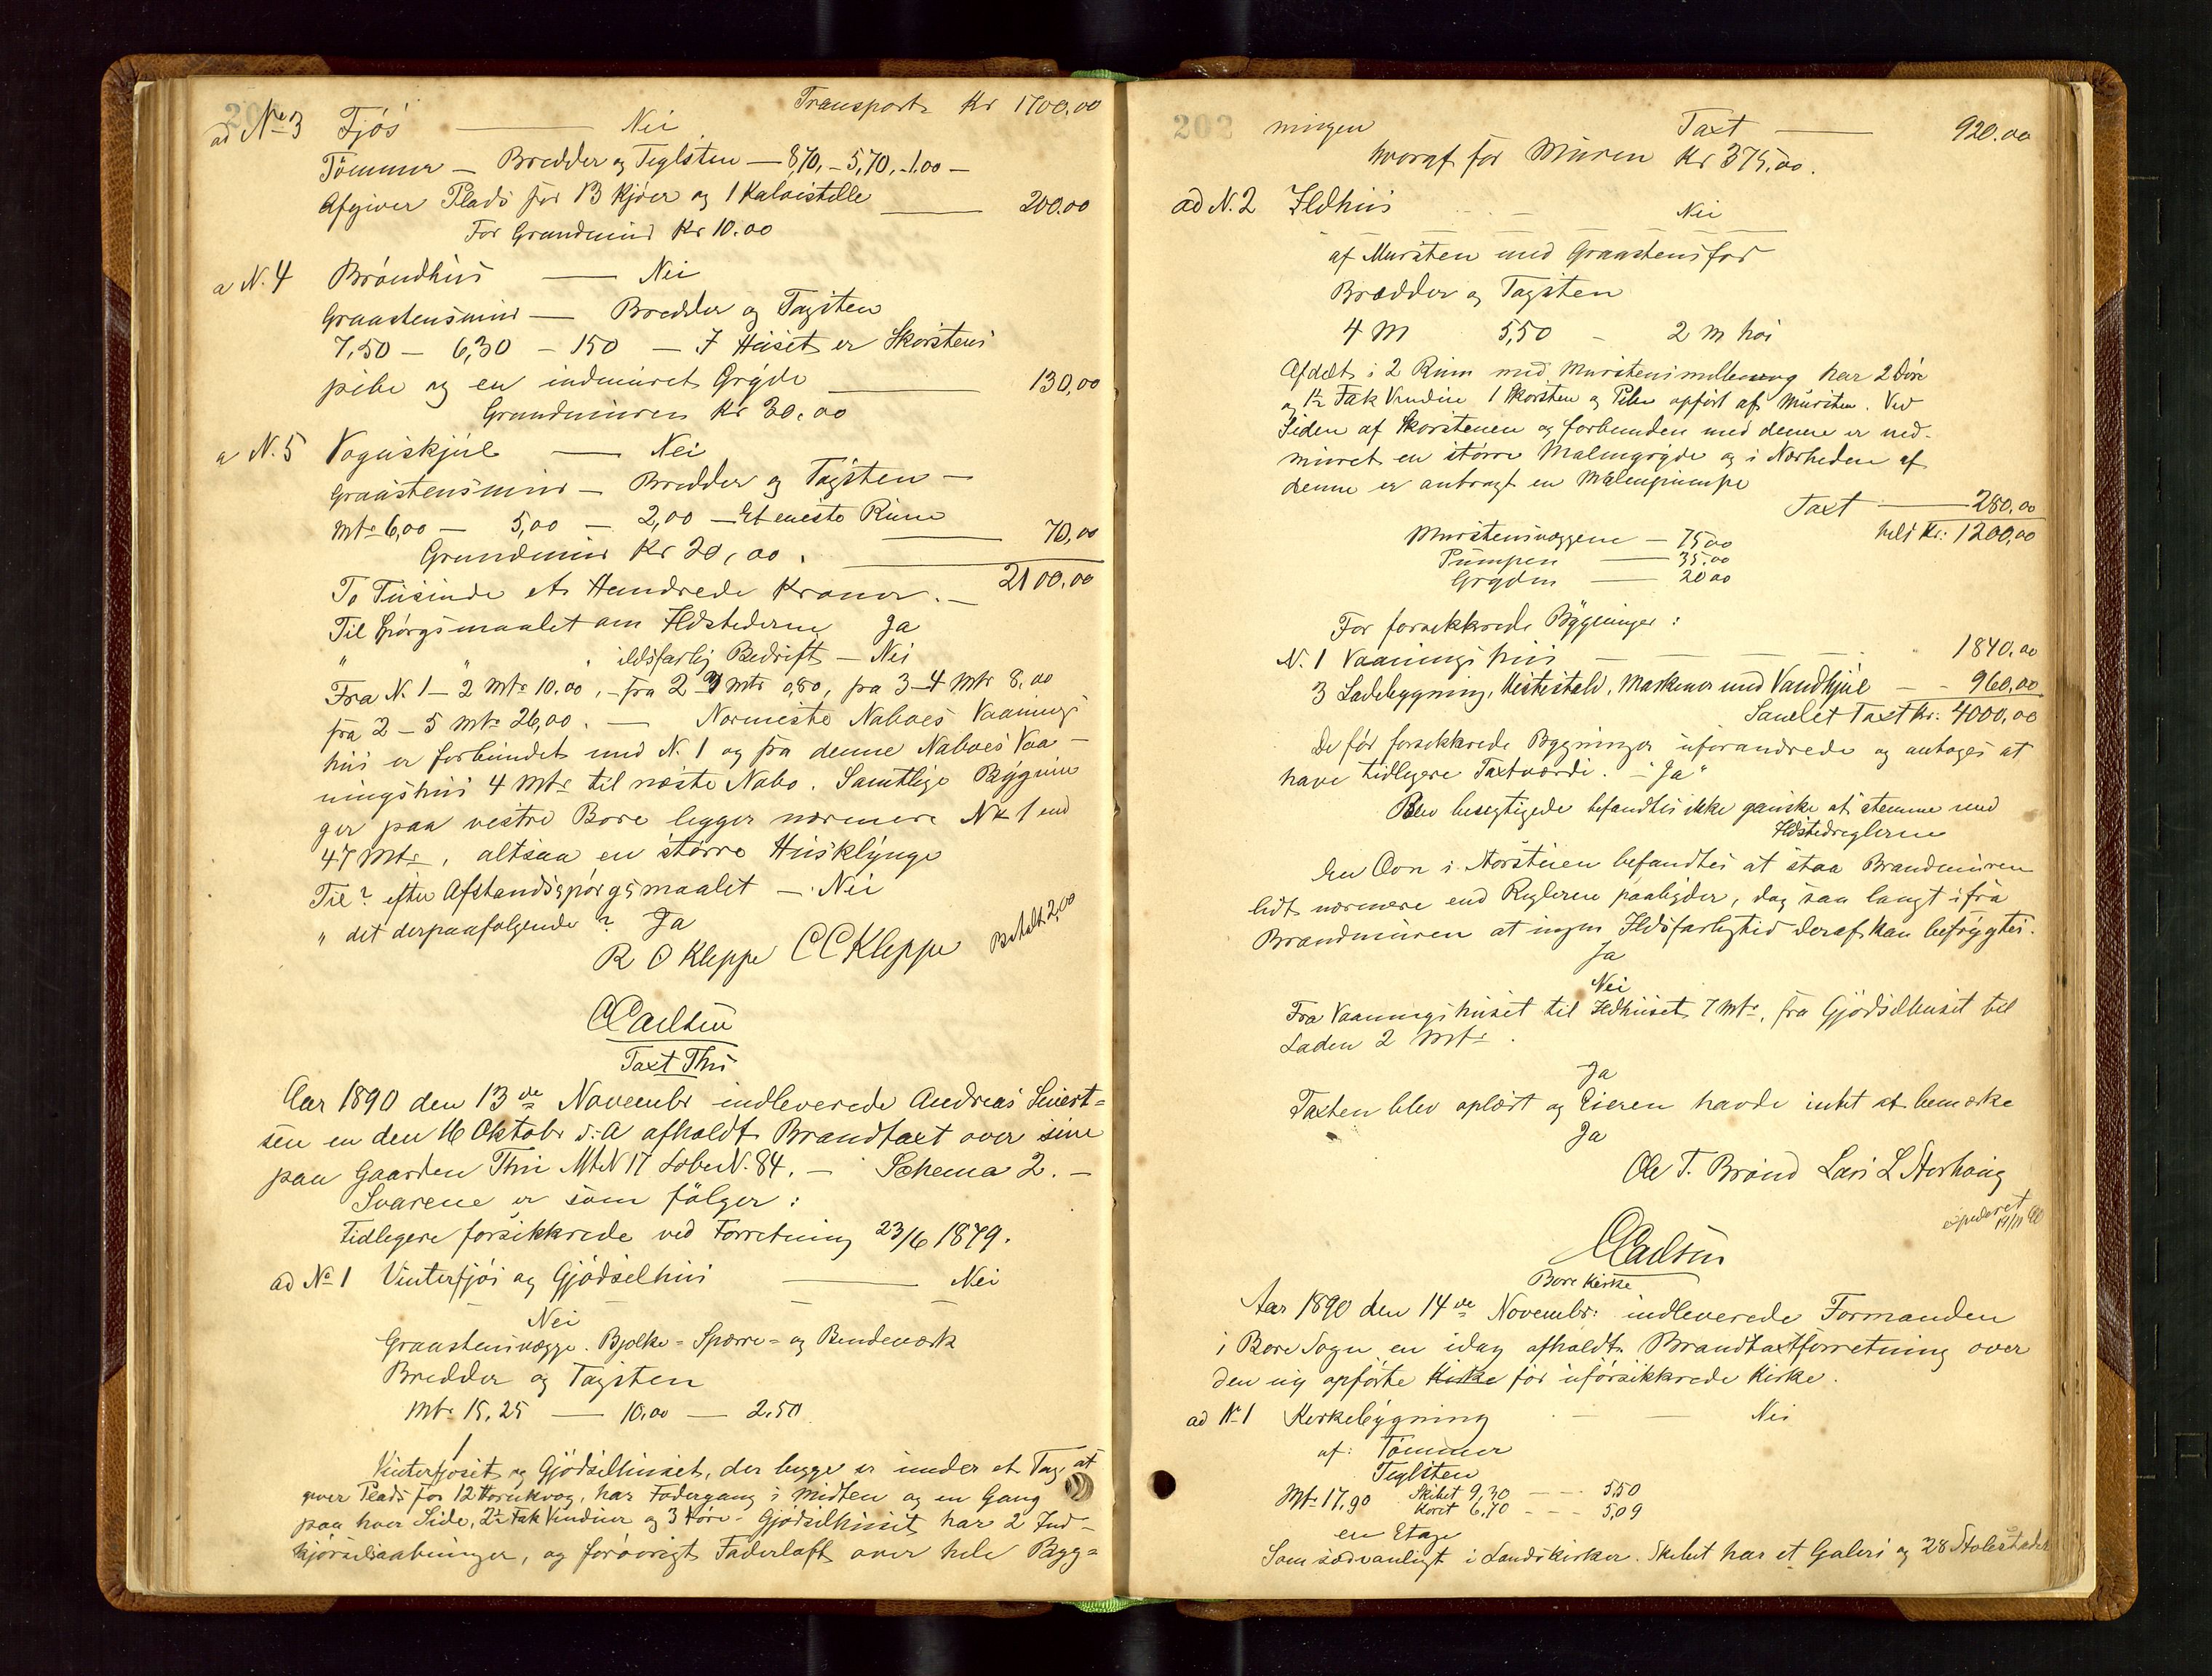 Transport Kr 1700,00
ad No 3 Fjøs — Nei
Tømmer — Bredder og Teglsten — 8,70, - 5,70, - 1,00 —
Afgiver Plads for 13 Kjøer og 1 Kalvistelle — 200.00
For Grundmuur Kr 10.00
a N. 4 Brøndhus — Nei
Graastensmuur — Bredder og Tagsten
7,50 — 6,30 — 150 — I Huset er Skorstens
pibe og en indmuret Gryde — 130,00
Grundmuren Kr 30.00
a N. 5 Vognskjul — Nei
Graastensmuur — Bredder og Tagsten —
Mtr 6,00 — 5,00 — 2,00 — Et eneste Rum — 70,00
Grundmuur Kr 20,00.
To Tusinde et Hundrede Kroner. — 2100,00
Til Spørgsmaalet om Ildstederne Ja
" " ildsfarlig Bedrift — Nei
Fra N. 1 — 2 Mtr 10.00, — fra 2 3 Mtr 0,80, fra 3—4 Mtr 8,00
fra 2 — 5 Mtr 26,00. — Nærmeste Naboes Vaanings
hus er forbundet med N. 1 og fra denne Naboes Vaa-
ningshus 4 Mtr til næste Nabo. Samtlige Bygnin
ger paa vestre Bore ligger nærmere No 1 end
47 Mtr, altsaa en større Husklynge
Til ? efter Afstandsspørgsmaalet — Nei
" det derpaafølgende ? Ja
R O Kleppe CC Kleppe Betalt 2,00
CCarlsen
Taxt Thu
Aar 1890 den 13de Novembr indleverede Andreas Sivert=
sen en den 16 Oktobr d: A afholdt Brandtaxt over sine
paa Gaarden Thu Mt N 17 Løbe N. 84. — Schema 2. —
Svarene er som følger:
Tidligere forsikkrede ved Forretning 23/6 1879.
ad No 1 Vinterfjøs og Gjødselhus — Nei
Nei
Graastensvægge. Bjelke= Sparre= og Bindeværk
Bredder og Tagsten
Mtr 15,25 — 10.00 — 2.50
Vinterfjøset og Gjødselhuset, der begge er under et Tag, af
giver Plads for 12 Hornkvæg, har Fodergang i Midten og en Gang
paa hver Side, 2½ Fak Vinduer og 3 Døre. Gjødselhuset har 2 Ind-
kjørselsaabninger, og forøvrigt Foderloft over hele Byg=
202
ningen Taxt — 920.00
hvoraf for Muren Kr 375,00.
ad N. 2 Ildhus — Nei
af Mursten med Graastensfod
Brædder og Tagsten
4 M 5,50 - 2 m høi
Afdelt i 2 Rum med Murstensmellemvæg har 2 Døre
og 1½ Fak Vinduer 1 Skorsten og Pibe opført af Mursten. Ved
Siden af Skorstenen og forbunden med denne er ned-
muret en større Malmgryde og i Nærheden af
denne er anbragt en Malmpumpe
Taxt — 280.00
Murstensvæggene — 75.00 hels Kr: 1200,00
Pumpen — 35.00
Gryden — 20 00
Før forsikkrede Bygninger:
N. 1 Vaaningshus — 1840.00
3 Ladebygning, Hestestald, Maskinrum med Vandhjul — 960,00
Samlet Taxt Kr: 4000,00
De før forsikkrede Bygninger uforandrede og antages at
have tidligere Taxtværdi. — "Ja"
Blev besigtigede befandtes ikke ganske at stemme med
Ildstedreglerne
En Ovn i Storstuen befandtes at staa Brandmuren
lidt nærmere end Reglerne paabyder, dog saa langt ifra
Brandmuren at ingen Ildsfarlighed deraf kan befrygtes.
Ja
Nei
Fra Vaaningshuset til Ildhuset 7 Mtr, fra Gjødselhuset til
Laden 2 Mtr.
Ja
Taxten blev oplæst og Eieren havde intet at bemærke
Ja
Ole T. Brønd Lars L Storhaug
expederet 19/11 90
CCarlsen
Bore Kirke
Aar 1890 den 14de Novembr: indleverede Formanden
i Bore Sogn en idag afholdt Brandtaxtforretning over
den ny opførte Kirke før uforsikkrede Kirke.
ad No 1 Kirkebygning — Nei
af: Tømmer
Teglsten
Mtr 17,90 Skibet 9,30 — 5,50
Koret 6,70 — 5,09
en Etage
Som sædvanligt i Landskirker. Skibet har et Galeri og 28 Stolestader